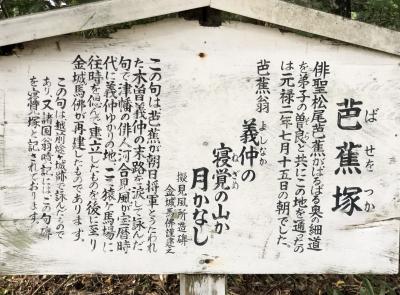 芭蕉塚
ばせをつか
俳聖松尾芭蕉がはるばる奥の細道
を弟子の曽良と共にこの地を通ったの
は元禄二年七月十五日の朝でした。
芭蕉翁
義仲の
よしなか
寝覚の山か
ねざめ
月かなし
擬見風所造碑
金城馬佛謹建之
この句は芭蕉が朝日将軍とうたわれ
た木曽義仲の木曽路を偲んで詠んだ
句で津幡の俳人河合見風が宝暦時
代に義仲ゆかりの地ここ猿ヶ馬場に
往時を偲んで建立したものを後に至り
金城馬佛が再建したものであります。
この句は越前燧ヶ城跡で詠んだもので
あり、又諸国翁墳記にはこの句碑
を寝覚塚と記されております。